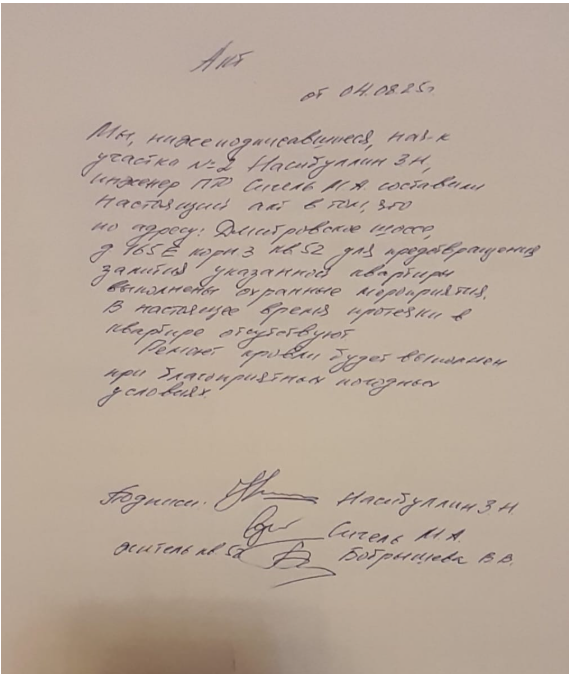 Акт
от 04.08.25г
Мы, нижеподписавшиеся, нач-к
участка №2 Насибуллин З.Н,
инженер ПТО Сигель М.А. составили
настоящий акт в том, что
по адресу: Дмитровское шоссе,
д 165Е корп 3 кв 52 для предотвращения
залития указанной квартиры
выполнены охранные мероприятия.
В настоящее время протечки в
квартире отсутствуют
Ремонт кровли будет выполнен
при благоприятных погодных
условиях.
Подписи. Насибуллин З.Н.
Сигель М.А.
житель кв 52 Бобрышева В.В.